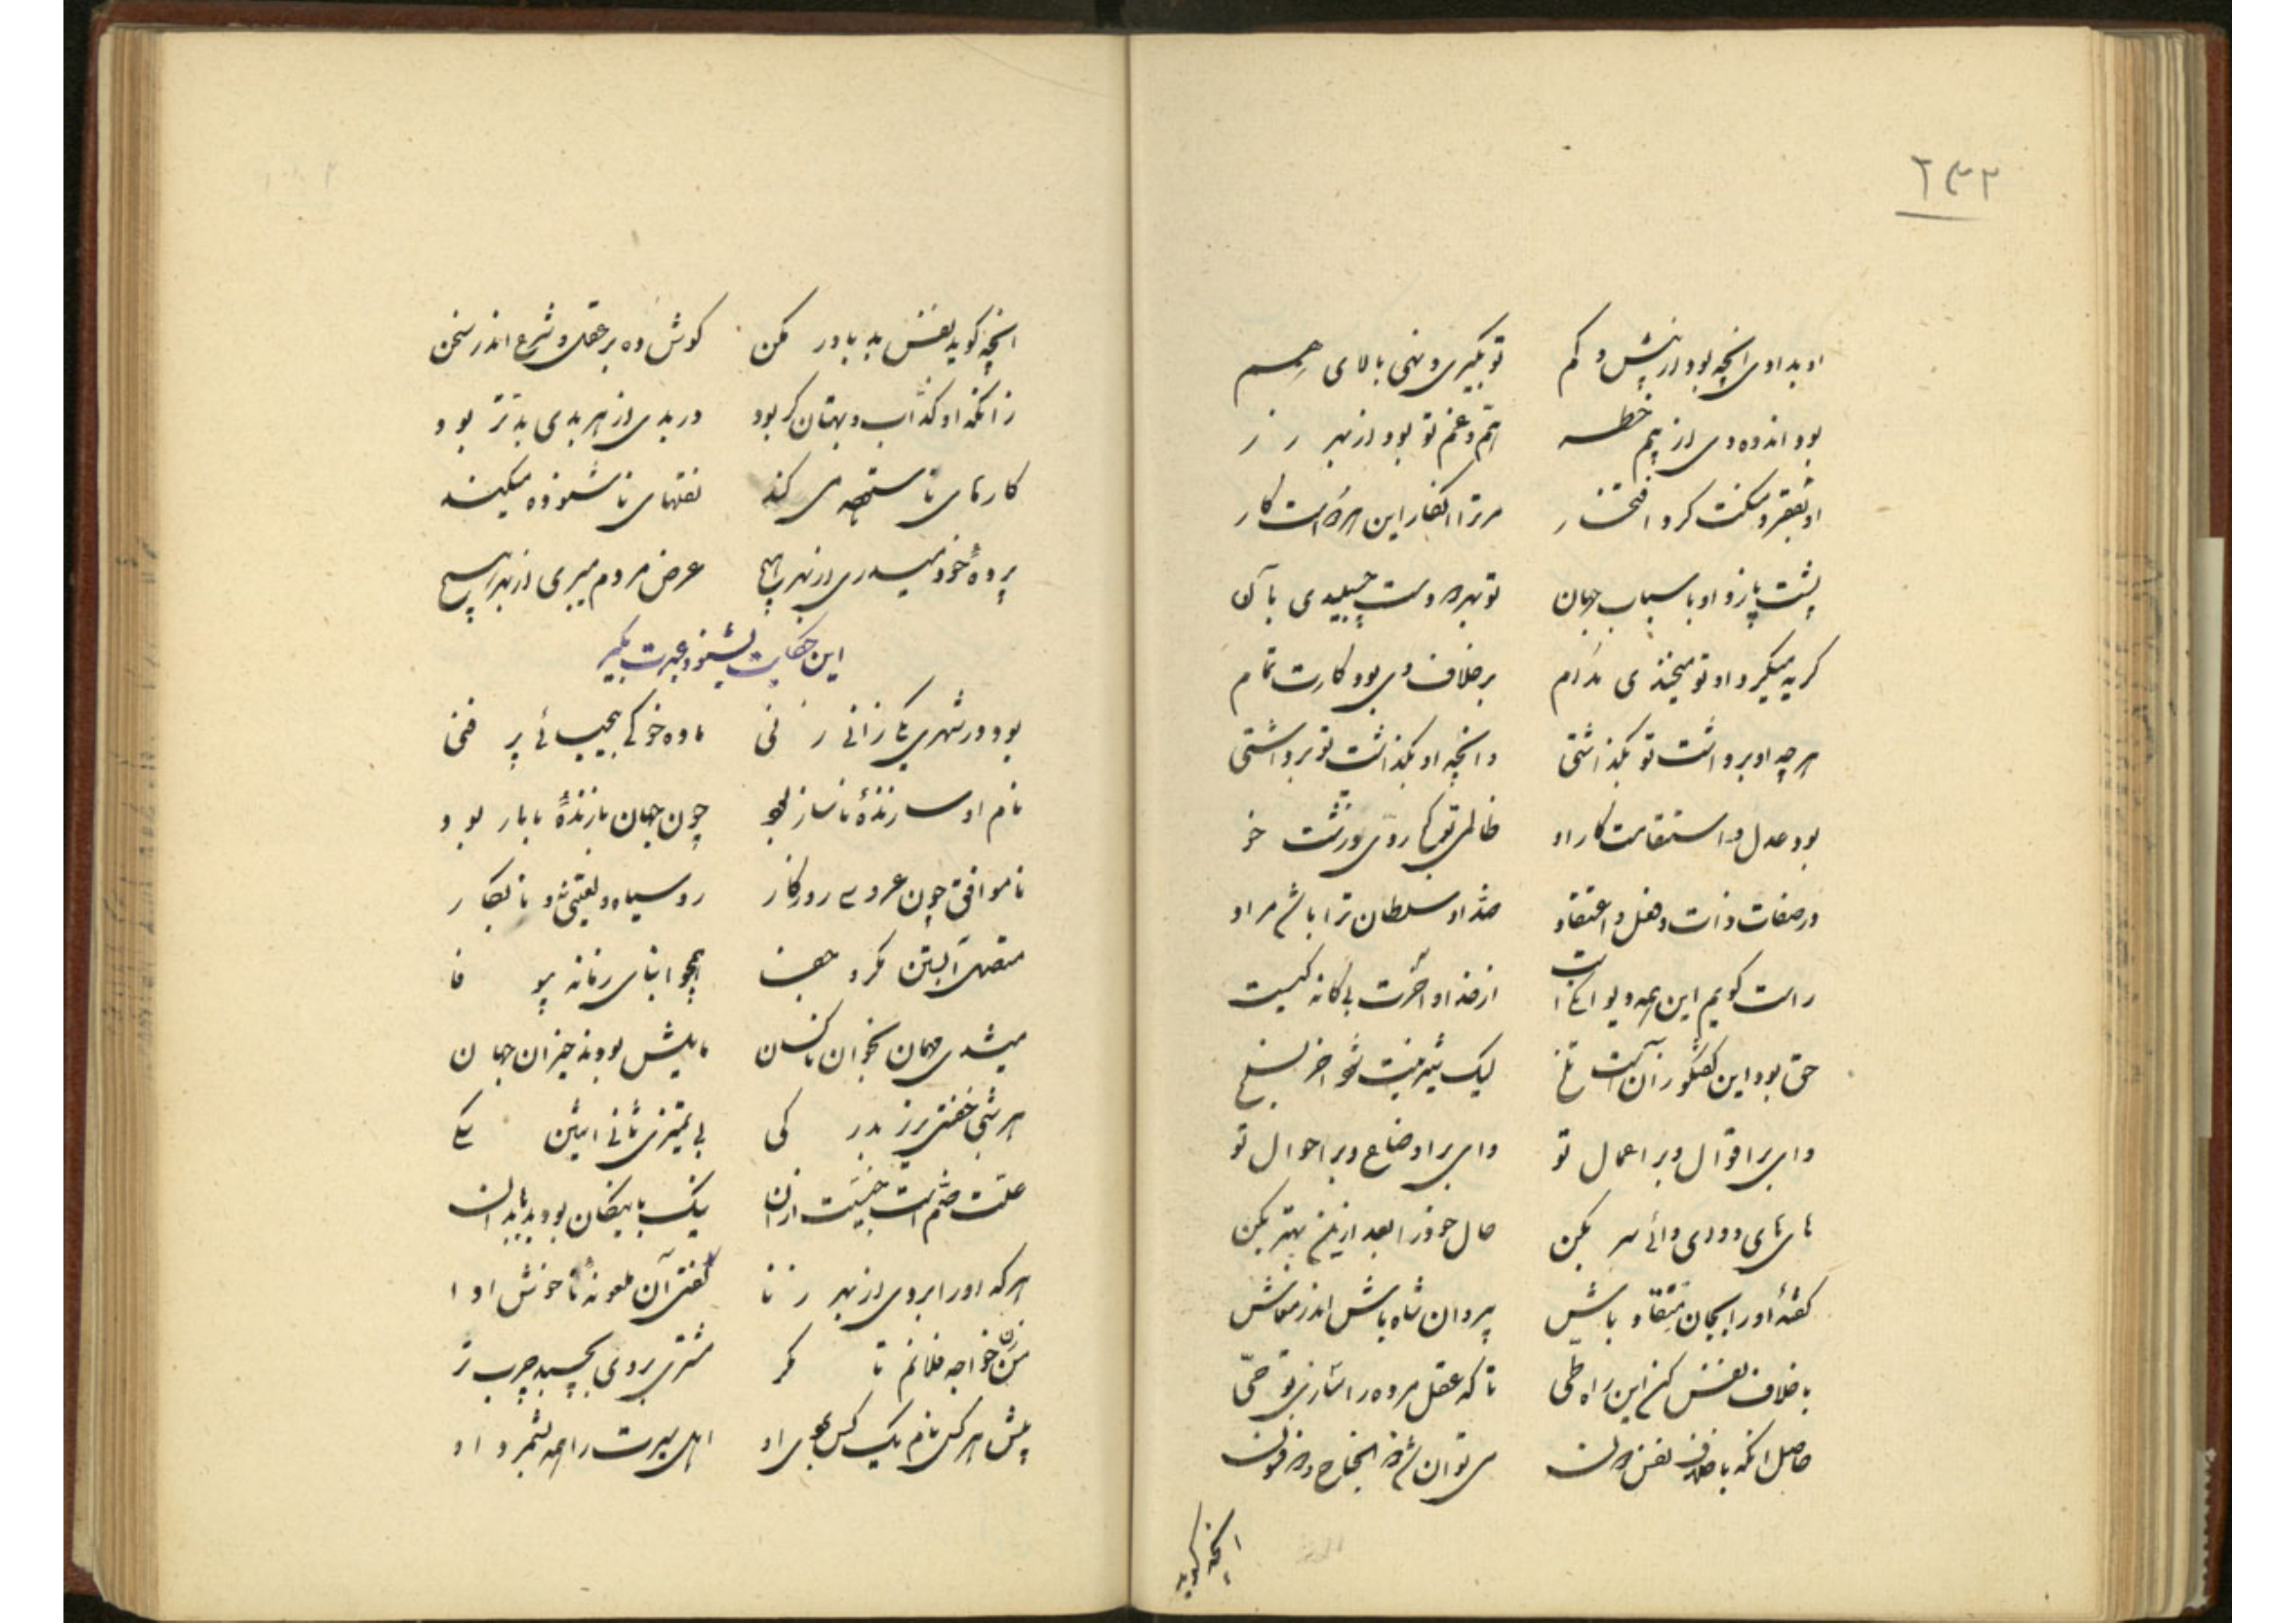 ۲۳۲
او بدادی آنچه بود از بیش و کم تو بگیری و نهی بالای هم
بود اندوه وی از بیم خطر همّ و غم تو بود از بهر زر
او بفقر و مسکنت کرد افتخار مر ترا
پشت پا زد او باسباب جهان تو بهر دو دست چسبیدی بآن
گریه میکرد او تو میخندی مدام برخلاف وی بود کارت تمام
هر چه او برداشت تو بگذاشتی وانچه او بگذاشت تو برداشتی
بود عدل و استقامت کار او ظالمی تو کج روی و زشت خو
در صفات و ذات و فعل و اعتقاد ضد او سلطان ترا باشد مراد
راست گویم این همه دیوانگی است از خدا و آخرت بیگانگیست
حق بود این گفتگو زآن است تلخ لیک شیرینیت شود آخر بسلخ
وای بر اقوال و بر اعمال تو وای بر اوضاع و بر احوال تو
های های و وای وای سر بکن حال خود را بعد ازین بهتر بکن
گفتهٔ او را بجان منقاد باش پیرو آن شاه باش اندر معاش
با خلاف نفس کن این راه طی تا که عقل مرده را سازی تو حی
حاصل آنکه با خلاف نفس دون می توان شد
آنچه گوید
آنچه گوید نفس بد باور مکن گوش ده بر عقل و شرع اندر سخن
زانکه او کذّاب و بهتان گر بود در بدی از هر بدی بدتر بود
کارهای ناستوده می کند نقلهای ناشنوده میکند
پردهٔ خود میدری از بهر هیچ عرض مردم میبری از بهر هیچ
این حکایت بشنو و عبرت بگیر
بود در شهری یکی زانی زنی ماده خوکی بیحیائی پر فنی
نام او سازندهٔ ناساز بود چون جهان بازندهٔ نابار بود
ناموافق چون عروس روزگار روسیاه و لعبتی نابکار
متصل آبستن مکر و جفا همچو ابنای زمانه بیوفا
میشدی مهمان بخوان ناکسان مایلش بودند حیزان جهان
هر شبی خفتی بزیر بدرگی بی تمیزی ثانی اثنین سگی
علّت ضم است جنسیت از آن نیک با نیکان بود بد با بدان
هر که او را بردی از بهر زنا گفتی آن ملعونه ناخوش ادا
من زن خواجه فلانم تا مگر مشتری بروی بچسبد چرب تر
پیش هر کس نام یک کس می او اهل سیرت را همه بشمرد او